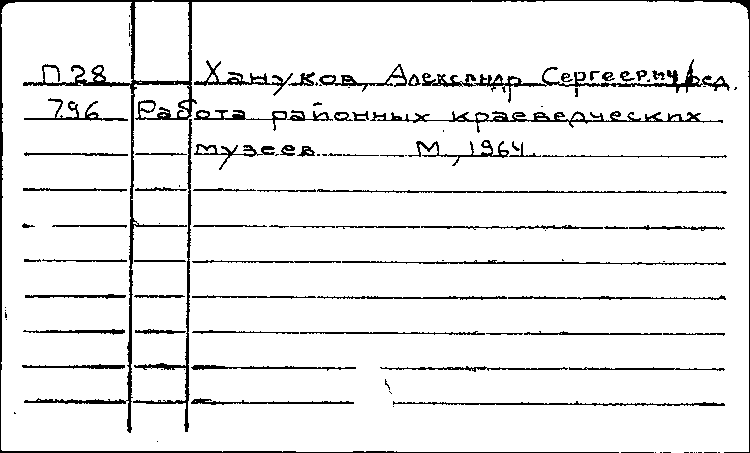 П 28 Хануков, Александр Сергеевич, ред.
796 Работа районных краеведческих
музеев М., 1964.